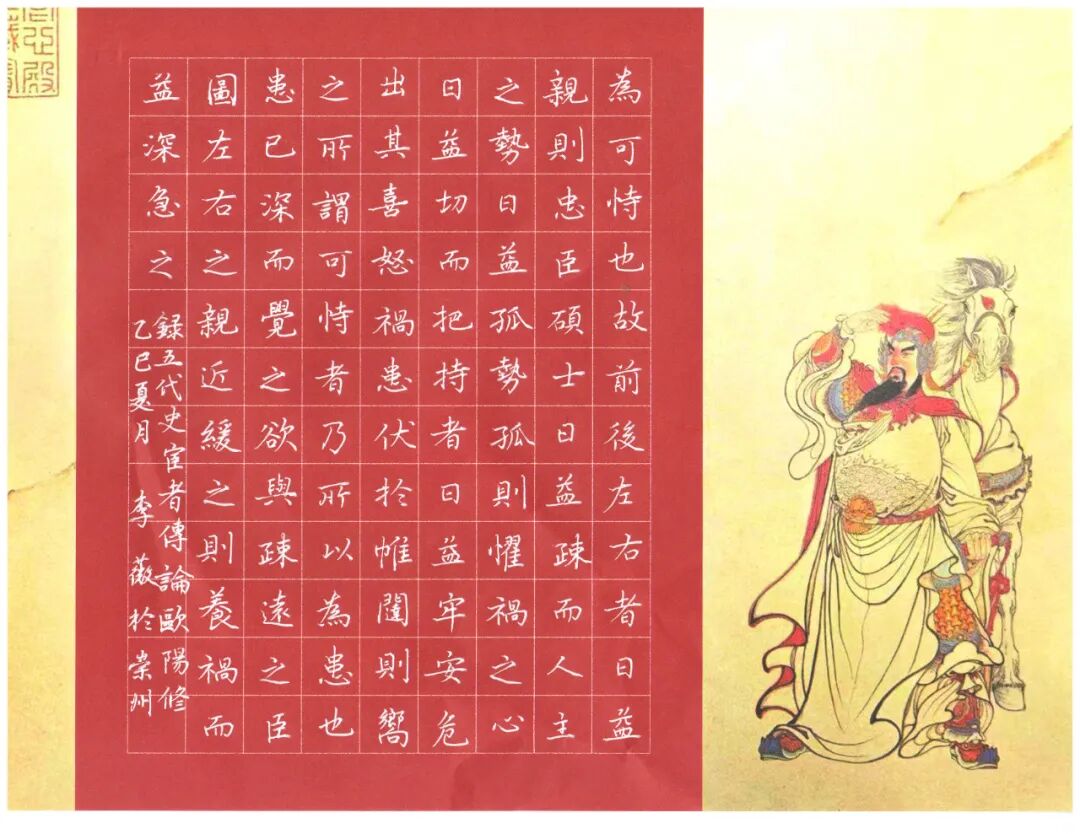 為可恃也故前後左右者日益
親則忠臣碩士日益疎而人主
之勢日益孤勢孤則懼禍之心
日益切而把持者日益牢安危
出其喜怒禍患伏於帷闥則嚮
之所謂可恃者乃所以為患也
患已深而覺之欲與疎遠之臣
圖左右之親近緩之則養禍而
益深急之
録五代史宦者傳論歐陽修
乙巳夏月 李薇於榮州